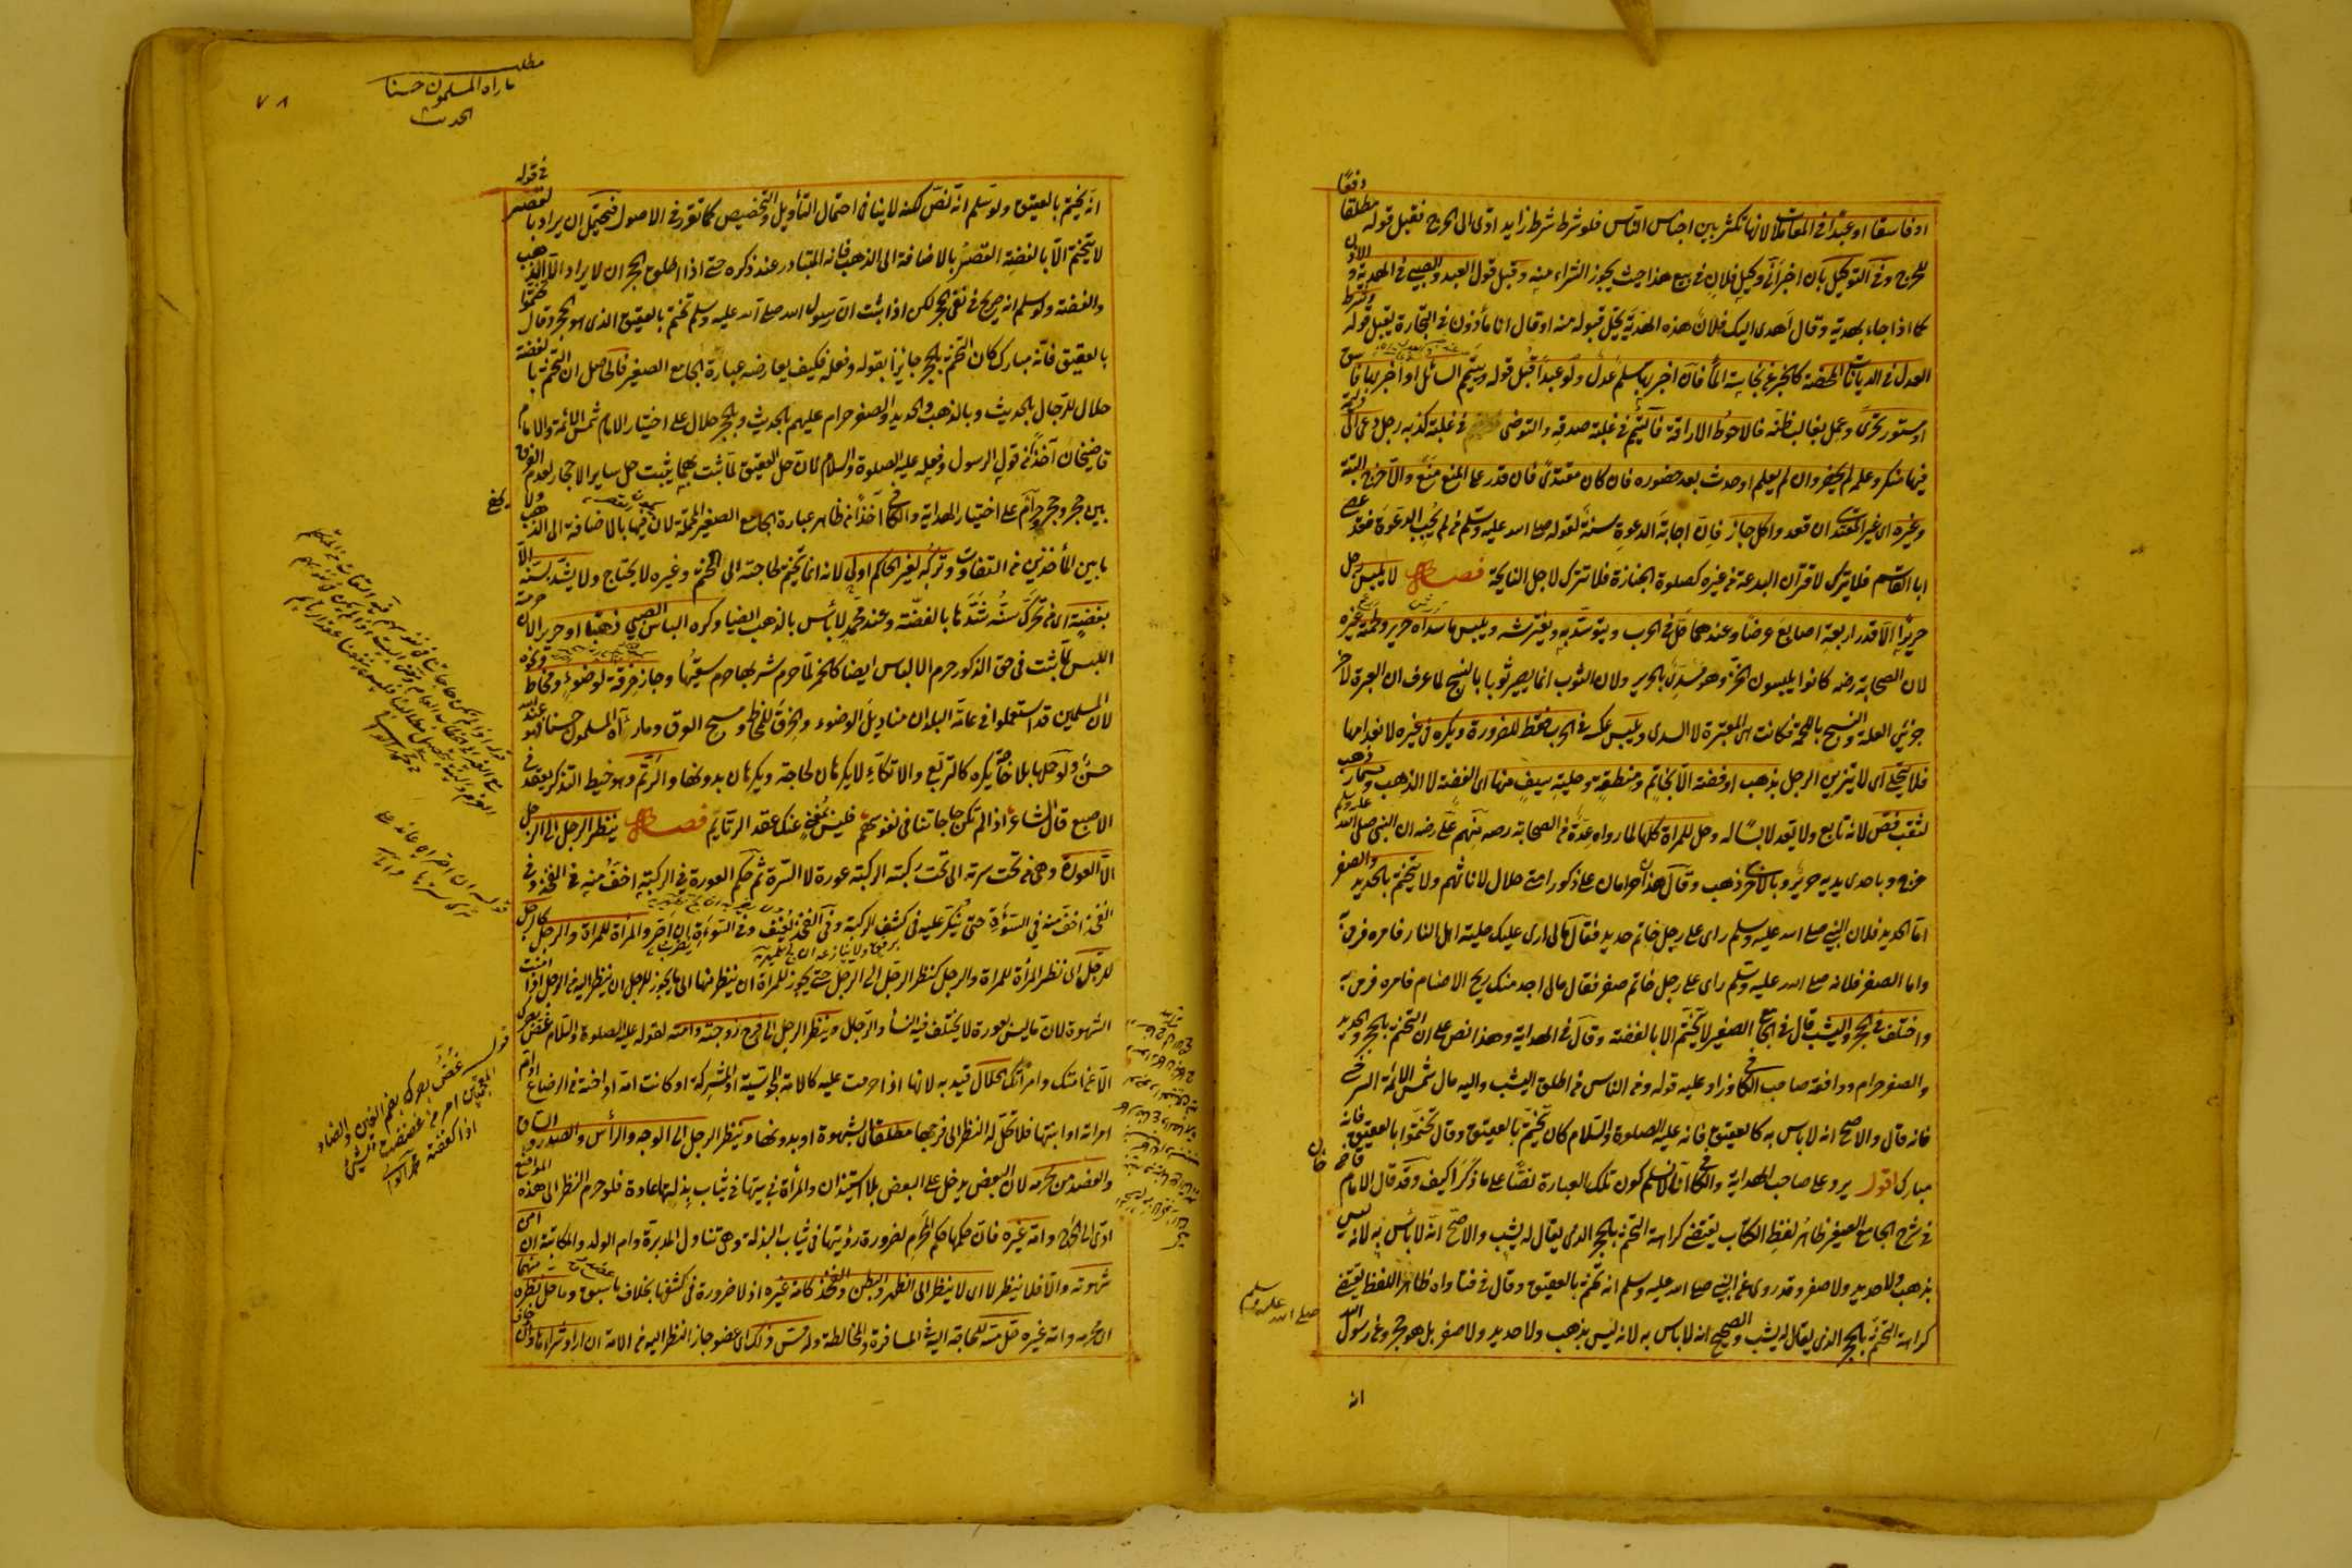 او فاسقا او عبدا في المعاملات لانها تكثر بين اجناس الناس فلو شرط شرط زايد ادى الى الحرج فقبل قوله مطلقا دفعًا
للحرج وفي التوكيل بان اخبر اني وكيل فلان في بيع هذا حيث يجوز الشراء منه وقبل قول العبد والصبي في الهدية و الاذن
كما اذا جاء بهدية وقال اهدى اليك فلان هذه الهدية يحل قبوله منه او قال انا مأذون في التجارة يقبل قوله وشرط
العدل في الديانات المحضة كالخبر عن نجاسة الماء فان اخبر بها مسلم عدل ولو عبدا قبل قوله ويتيمم السائل او اخبر بها فاسق
او مستور تحرى وعمل بغالب ظنه فالاحوط الاراقة فالتيمم في غلبة صدقه والتوضي في غلبة كذبه رجل دعي الى وليمة
فيها منكر وعلم لم يحضر وان لم يعلم او حدث بعد حضوره فان كان مقتدى فان قدر على المنع منع والا خرج البتة
وغيره اى غير المقتدى ان قعد واكل جاز فان اجابة الدعوة سنة لقوله صلى الله عليه وسلم من لم يجب الدعوة فقد عصى
ابا القاسم فلا يترك لاقتران البدعة من غيره كصلوة الجنازة فلا تترك لاجل النايحة فصل لا يلبس رجل
حريرًا الا قدر اربعة اصابع عرضًا وعندهما حل في الحرب ويتوسد به ويفترشه ويلبس ما سداه حرير ولحمته غيره
لان الصحابة رضه كانوا يلبسون الخز وهو مسدى بالحرير ولان الثوب انما يصير ثوبا بالنسج لما عرف ان العبرة لآخر
جزئى العلة والنسج باللحمة فكانت هى المعتبرة لا السدى ويلبس عكسه في الحرب فقط للضرورة ويكره في غيره لانعدامها
فلا يتحلى اى لا يتزين الرجل بذهب او فضة الا بخاتم ومنطقة وحلية سيف منها اى الفضة لا الذهب ومسمار ذهب
لثقب فص لانه تابع ولا يعد لابسًا له وحل للمرأة كلها لما رواه عدة من الصحابة رضه منهم على رضه ان النبى صلى الله عليه وسلم
خرج وباحدى يديه حرير وبالاخرى ذهب وقال هذا حرامان على ذكور امتى حلال لاناثهم ولا يتختم بالحديد والصفر
اما الحديد فلان النبى صلى الله عليه وسلم راى على رجل خاتم حديد فقال مالى ارى عليك حلية اهل النار فامره فرمى به
واما الصفر فلانه صلى الله عليه وسلم راى على رجل خاتم صفر فقال مالى اجد منك ريح الاصنام فامره فرمى به
واختلف في الحجر واليشب قال في الجامع الصغير لا يتختم الا بالفضة وقال في الهداية وهذا نص على ان التختم بالحجر والحديد
والصفر حرام ووافقه صاحب الكافى وزاد عليه قوله ومن الناس من اطلق اليشب واليه مال شمس الائمة السرخسى
فانه قال والاصح انه لا باس به كالعقيق فانه عليه الصلوة والسلام كان يتختم بالعقيق وقال تختموا بالعقيق فانه
مبارك اقول يرد على صاحب الهداية والكافى انا لا نسلم كون تلك العبارة نصًّا على ما ذكرا كيف وقد قال الامام قاضى خان
في شرح الجامع الصغير ظاهر لفظ الكتاب يقتضى كراهة التختم بالحجر الذى يقال له يشب والاصح انه لا باس به لانه ليس
بذهب ولا حديد ولا صفر وقد روى عن النبى صلى الله عليه وسلم انه تختم بالعقيق وقال في فتاواه ظاهر اللفظ يقتضى
كراهة التختم بالحجر الذى يقال له يشب والصحيح انه لا باس به لانه ليس بذهب ولا حديد ولا صفر بل هو حجر وعن رسول الله
صلى الله عليه وسلم
انه
٧٨
مطلب
ما راه المسلمون حسنا
الحديث
انه تختم بالعقيق ولو سلم انه نص لكنه لا ينافى احتمال التأويل والتخصيص كما تقرر في الاصول فيحتمل ان يراد بالقصر في قوله
لا يتختم الا بالفضة القصر بالاضافة الى الذهب فانه المتبادر عند ذكره حتى اذا اطلق الحجران لا يراد الا الذهب
والفضة ولو سلم انه صريح في نفى الحجر لكن اذا ثبت ان رسول الله صلى الله عليه وسلم تختم بالعقيق الذى هو الحجر وقال تختموا
بالعقيق فانه مبارك كان التختم بالحجر جائزًا بقوله وفعله فكيف يعارضه عبارة الجامع الصغير فالحاصل ان التختم بالفضة
حلال للرجال بالحديث وبالذهب والحديد والصفر حرام عليهم بالحديث وبالحجر حلال على اختيار الامام شمس الائمة والامام
قاضيخان آخذًا من قول الرسول وفعله عليه الصلوة والسلام لان حل العقيق لما ثبت بهما يثبت حل ساير الاحجار لعدم الفرق
بين حجر وحجر وحرام على اختيار الهداية والكافى آخذًا من ظاهر عبارة الجامع الصغير المحتملة لان فيها بالاضافة الى الذهب ولا يخفى
ما بين المأخذين من التفاوت وتركه لغير الحاكم اولى لانه انما يتختم لحاجته الى الختم وغيره لا يحتاج ولا يشد سنه الا
بفضة اى من تحرك سنه شدها بالفضة وعند محمد لا بأس بالذهب ايضا وكره الباس الصبى ذهبا او حريرا لان حرمة
اللبس لما ثبت في حق الذكور حرم الالباس ايضا كالخمر لما حرم شربها حرم سقيها وجاز خرقة لوضوء ومخاط ونحوه
لان المسلمين قد استعملوا في عامة البلدان مناديل الوضوء والخرق للمخاط ومسح العرق وما رآه المسلمون حسنا فهو عند الله
حسن ولو حملها بلا حاجة يكره كالتربع والاتكاء لا يكرهان لحاجة ويكرهان بدونها والرتم وهو خيط التذكر يعقد في
الاصبع قال الشاعر اذا لم تكن حاجاتنا في نفوسهم فليس بمغن عنك عقد الرتايم فصل ينظر الرجل الى الرجل
الا العورة وهى من تحت سرته الى تحت ركبته الركبة عورة لا السرة ثم حكم العورة في الركبة اخف منه في الفخذ وفى
الفخذ اخف منه في السوءة حتى ينكر عليه في كشف الركبة وفى الفخذ يعنف وفى السوءة ان اصر والمرأة للمرأة والرجل كالرجل
للرجل اى نظر المرأة للمرأة والرجل كنظر الرجل الى الرجل حتى يجوز للمرأة ان ينظر منها الى ما يجوز للرجل ان ينظر اليه من الرجل اذا امنت
الشهوة لان ما ليس بعورة لا يختلف فيه النساء والرجال وينظر الرجل الى فرج زوجته وامته لقوله عليه الصلوة والسلام غض بصرك
الا عن امتك وامرأتك الحلال قيد به لانها اذا حرمت عليه كالامة المجوسية او المشركة او كانت امه او اخته من الرضاع او ام
امراته او ابنتها فلا تحل له النظر الى فرجها مطلقا اى بشهوة او بدونها وينظر الرجل الى الوجه والرأس والصدر والساق
والعضد من محرمه لان البعض يدخل على البعض بلا استيذان والمرأة في بيتها في ثياب بذلتها عادة فلو حرم النظر الى هذه المواضع
ادى الى الحرج وامة غيره فان حكمها حكم المحرم لضرورة رؤيتها في ثياب البذلة وهى تتناول المدبرة وام الولد والمكاتبة ان امن
شهوته والا فلا ينظر لا اى لا ينظر الى الظهر والبطن والفخذ كامة غيره اذ لا ضرورة في كشفها بخلاف ما سبق وما حل نظره منهما
اى محرمه وامة غيره حل مسه للحاجة اليه في المسافرة والمخالطة وله مس ذلك اى عضو جاز النظر اليه من الامة ان اراد شراءها وان خاف
قوله غض بصرك بضم الغين والضاد